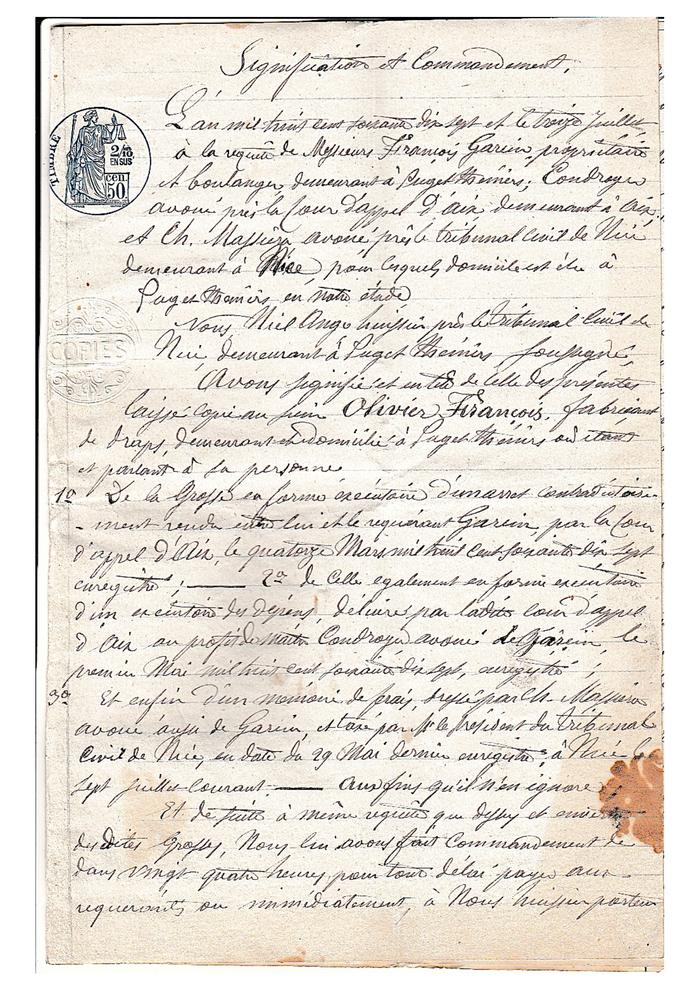 Signification et Commandement.
L'an mil huit cent soixante dix sept et le treize Juillet
à la requête de Messieurs François Garcin propriétaire
et boulanger demeurant à Puget Théniers; Condroyer
avoué près la Cour d'appel d'Aix demeurant à Aix,
et Ch. Massiéra avoué près le tribunal Civil de Nice
demeurant à Nice, pour lesquels domicile est élu à
Puget Théniers, en notre étude
Nous Niel Ange huissier près le tribunal Civil de
Nice, demeurant à Puget Théniers soussigné,
Avons signifié et en tête de celle des présentes
laissé copie au sieur Olivier François, fabricant
de draps, demeurant et domicilié à Puget Théniers où étant
et parlant à sa personne
1o De la Grosse en forme exécutoire d'un arret contradictoire-
-ment rendu entre lui et le requerant Garcin par la Cour
d'appel d'Aix, le quatorze Mars mil huit cent soixante dix sept
enregistré; — 2o de Celle egalement en forme exécutoire
d'un exécutoire des dépens, délivré par ladite cour d'appel
d'Aix au profit de maître Condroyer avoué de Garcin, le
premier Mai mil huit cent soixante dix sept, enregistré;
3o Et enfin d'un mémoire de frais, dressé par Ch. Massiéra
avoué aussi de Garcin, et taxé par Mr le President du tribunal
Civil de Nice, en date du 29 Mai dernier enregistré, à Nice le
sept Juillet courant. — aux fins qu'il n'en ignore
Et de suite à même requête que dessus et en
desdites Grosses, Nous lui avons fait Commandement de
dans vingt quatre heures, pour tout délai payer aux
requerants ou immédiatement, à Nous huissier porteur
TIMBRE
2/10
EN SUS
cen.
50
COPIES